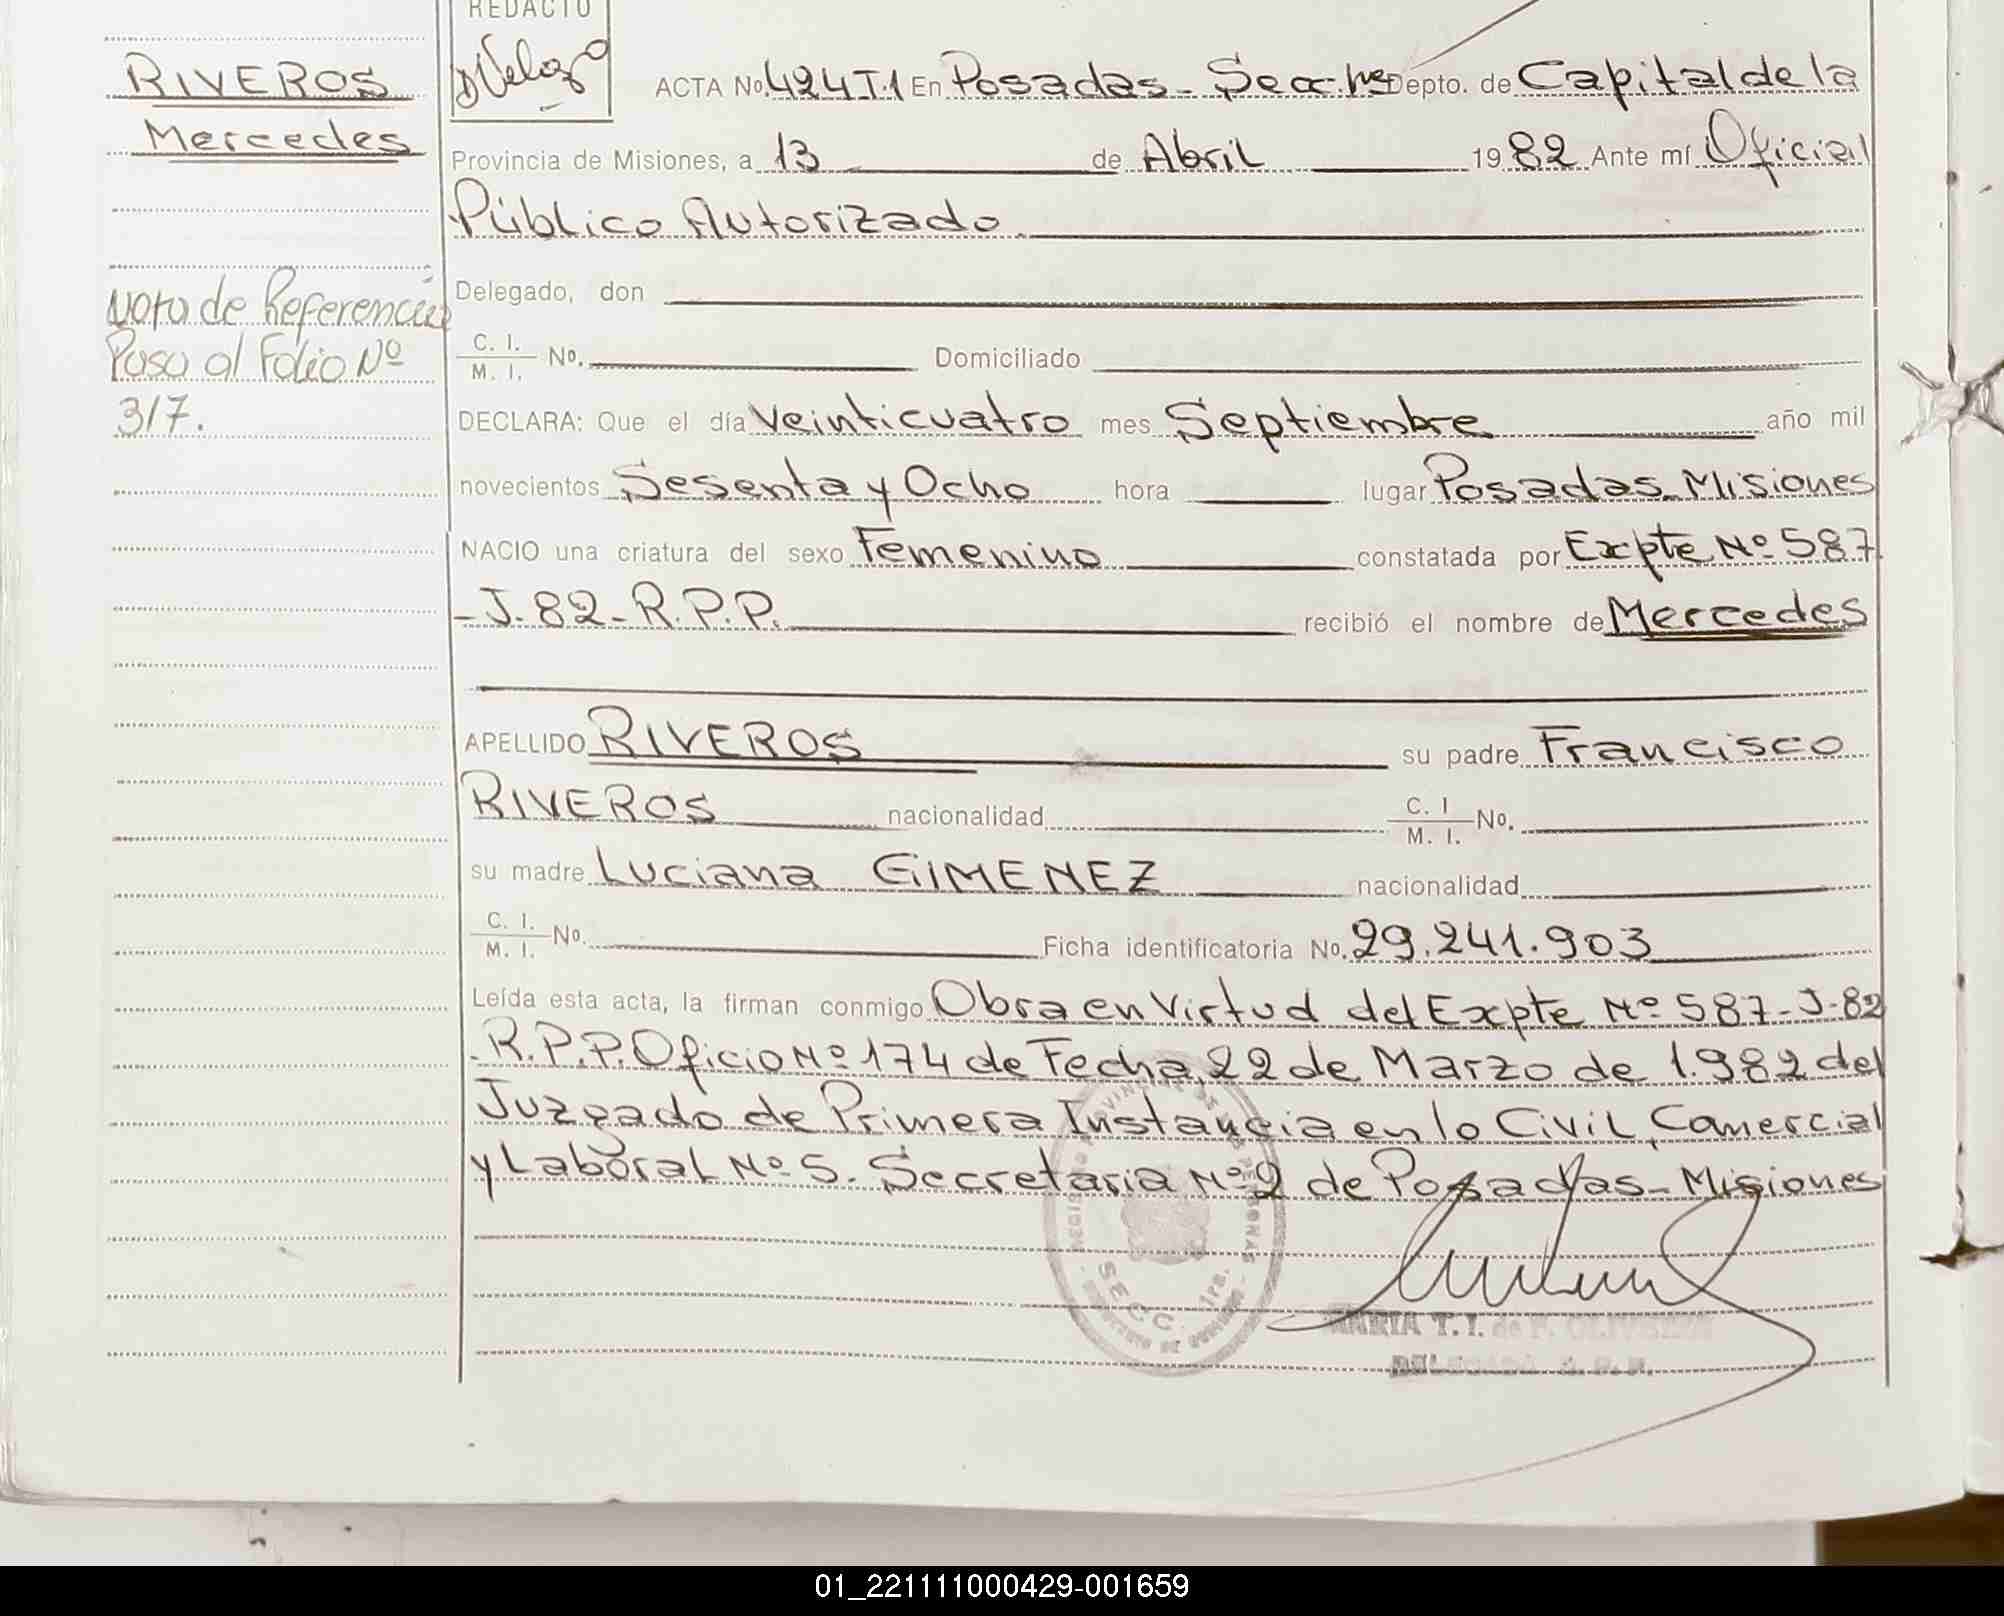 REDACTO
DVelozo
RIVEROS
Mercedes
Nota de Referencia
Pasa al Folio Nº
317.
ACTA Nº 424 T.1 En Posadas - Secc. 1ra Depto. de Capital de la
Provincia de Misiones, a 13 de Abril 1982 Ante mí Oficial
Público Autorizado.
Delegado, don
C. I.
M. I. Nº. Domiciliado
DECLARA: Que el día Veinticuatro mes Septiembre año mil
novecientos Sesenta y Ocho hora lugar Posadas Misiones
NACIO una criatura del sexo Femenino constatada por Expte Nº 587
-J-82-R.P.P. recibió el nombre de Mercedes
APELLIDO RIVEROS su padre Francisco
RIVEROS nacionalidad C. I
M. I. Nº.
su madre Luciana GIMENEZ nacionalidad
C. I.
M. I. Nº. Ficha identificatoria Nº. 29.241.903
Leída esta acta, la firman conmigo Obra en Virtud del Expte Nº 587-J-82
R.P.P. Oficio Nº 174 de Fecha 22 de Marzo de 1.982 del
Juzgado de Primera Instancia en lo Civil, Comercial
y Laboral Nº 5. Secretaria Nº 2 de Posadas - Misiones
SECC. 1ra.
MARIA T. I. de F. OLIVEIRA
01_221111000429-001659